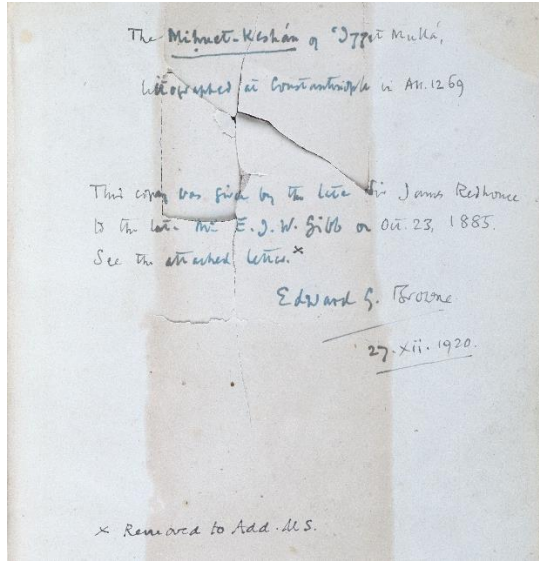 The Mihnet-Keshán of ʿIzzet Mullá,
lithographed at Constantinople in A.H. 1269
This copy was given by the late Sir James Redhouse
to the late Mr. E. J. W. Gibb on Oct. 23, 1885.
See the attached letter. ×
Edward G. Browne
27. xii. 1920.
× Removed to Add. MS.